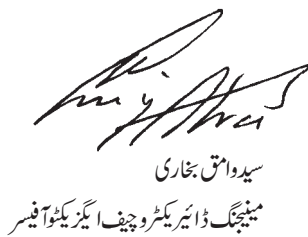 سید وامق بخاری
مینیجنگ ڈائیریکٹر و چیف ایگزیکٹو آفیسر